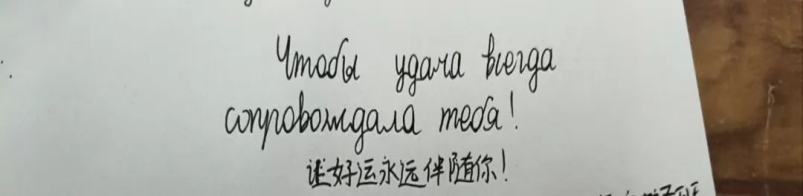 Чтобы удача всегда
сопровождала тебя!
让好运永远伴随你!